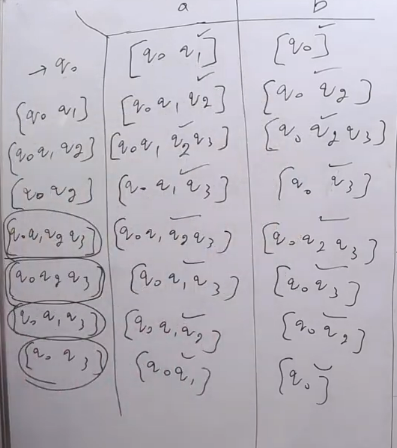 a b
→ q₀ [q₀ q₁] [q₀]
[q₀ q₁] [q₀ q₁ q₂] [q₀ q₂]
[q₀ q₁ q₂] [q₀ q₁ q₂ q₃] [q₀ q₂ q₃]
[q₀ q₂] [q₀ q₁ q₃] [q₀ q₃]
[q₀ q₁ q₂ q₃] [q₀ q₁ q₂ q₃] [q₀ q₂ q₃]
[q₀ q₂ q₃] [q₀ q₁ q₃] [q₀ q₃]
[q₀ q₁ q₃] [q₀ q₁ q₂] [q₀ q₂]
[q₀ q₃] [q₀ q₁] [q₀]